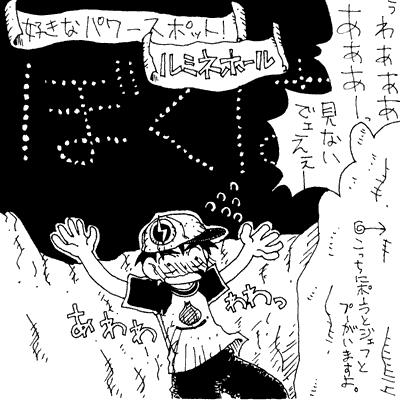 好きなパワースポット!
ルミネホール
ぼく
うわぁああ
ああああーっ
見ない
でェえぇー
あわわわ
わわっ
こっちにポーラとジェフと
プーがいますよ。